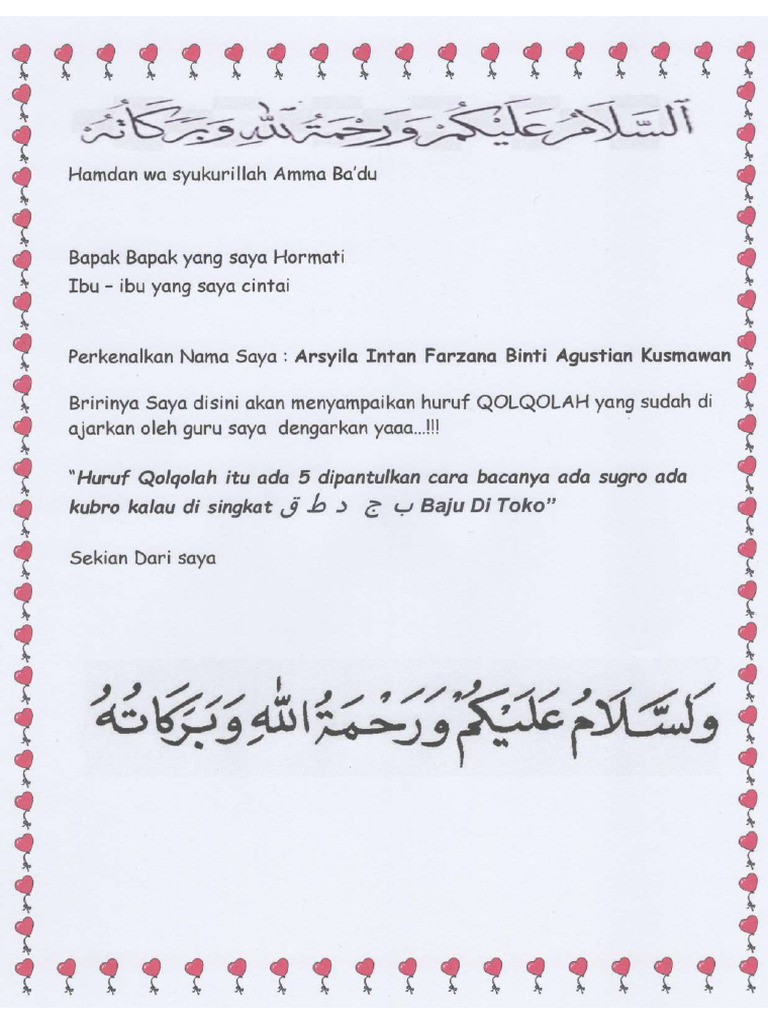 اَلسَّلَامُ عَلَيْكُمْ وَرَحْمَةُ اللهِ وَبَرَكَاتُهُ
Hamdan wa syukurillah Amma Ba’du
Bapak Bapak yang saya Hormati
Ibu – ibu yang saya cintai
Perkenalkan Nama Saya : Arsyila Intan Farzana Binti Agustian Kusmawan
Bririnya Saya disini akan menyampaikan huruf QOLQOLAH yang sudah di
ajarkan oleh guru saya dengarkan yaaa...!!!
“Huruf Qolqolah itu ada 5 dipantulkan cara bacanya ada sugro ada
kubro kalau di singkat ب ج د ط ق Baju Di Toko”
Sekian Dari saya
وَلسَّلَامُ عَلَيْكُمْ وَرَحْمَةُ اللهِ وَبَرَكَاتُهُ